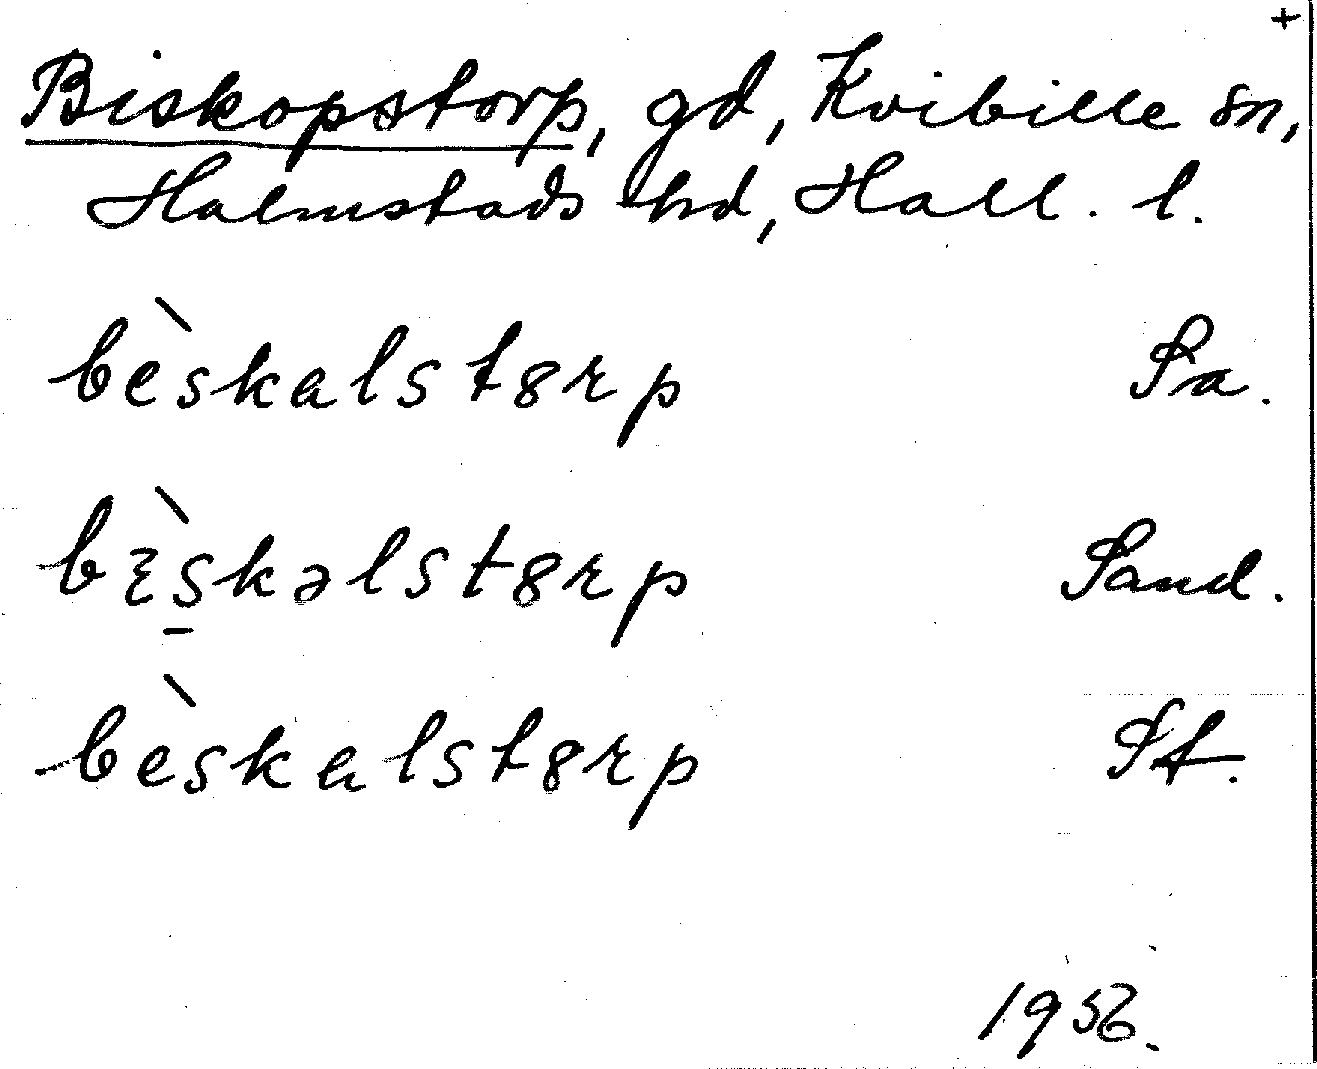 +
Biskopstorp, gd, Kvibille sn,
Halmstads hd, Hall. l.
bèskalstɞrp Sa.
bꞫ̀skəlstɞrp Sand.
bèskalstɞrp St.